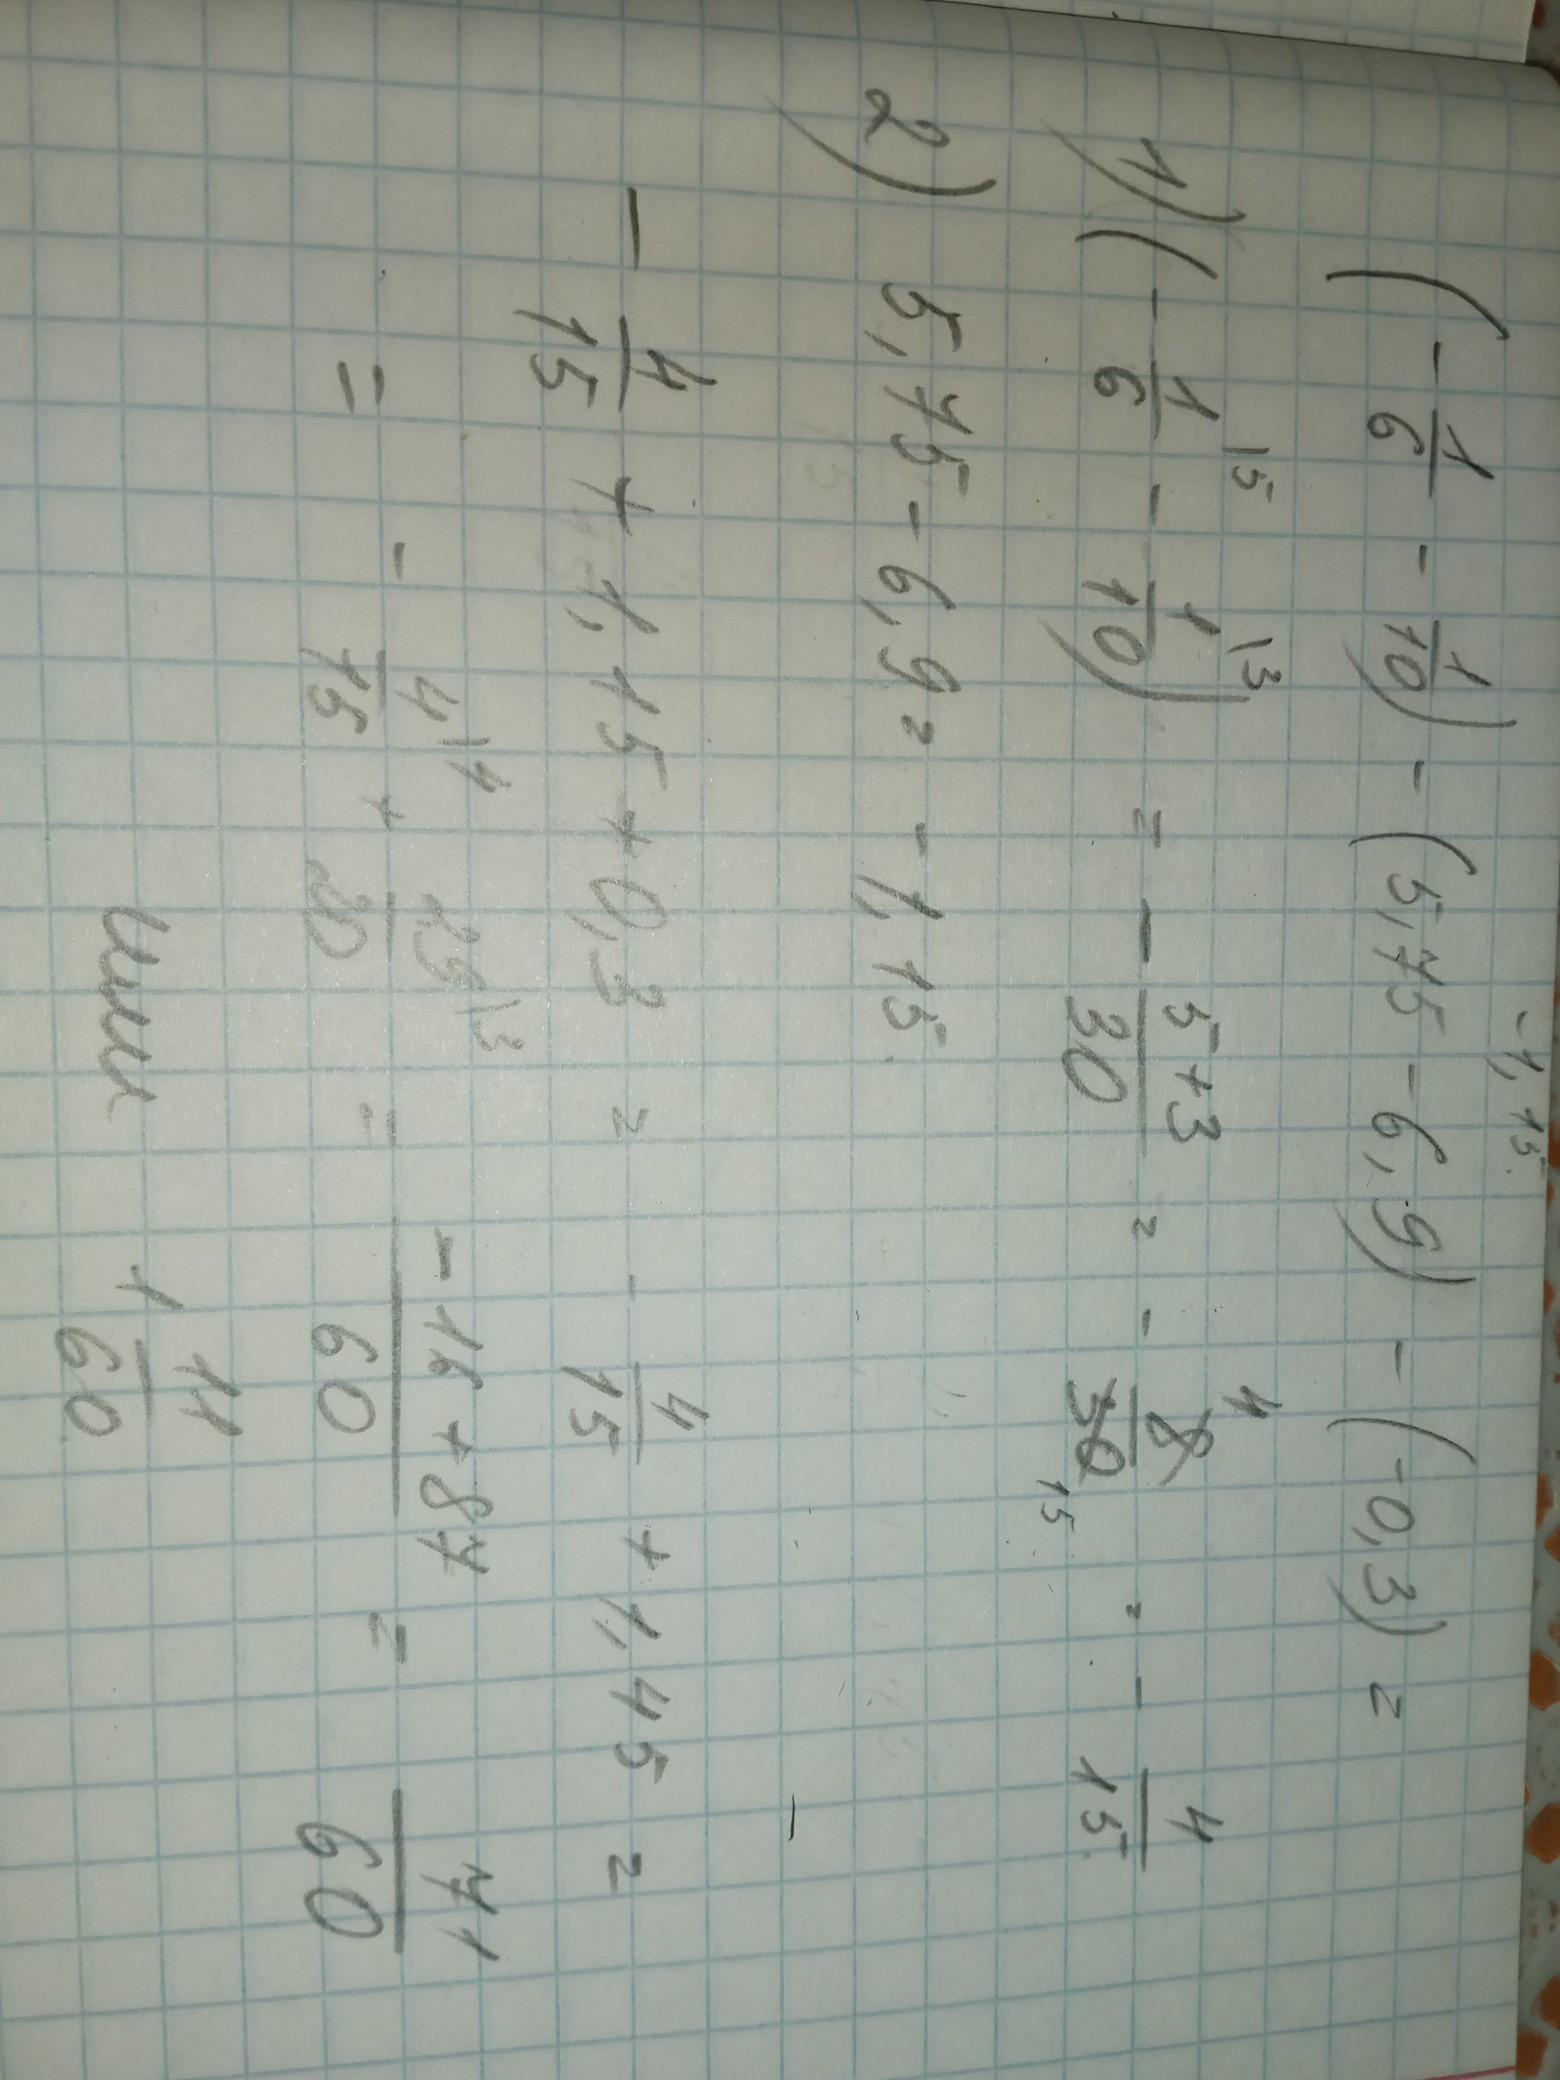 -1,15.
(-1/6 - 1/10) - (5,75 - 6,9) - (-0,3) =
1) (-1/6 \5 - 1/10 \3) = - 5+3/30 = - 8/30 4 15 = - 4/15.
2) 5,75 - 6,9 = -1,15.
- 4/15 + 1,15 + 0,3 = - 4/15 + 1,45 =
= - 4/15 \4 + 29/20 \3 = -16+87/60 = 71/60
или 1 11/60.